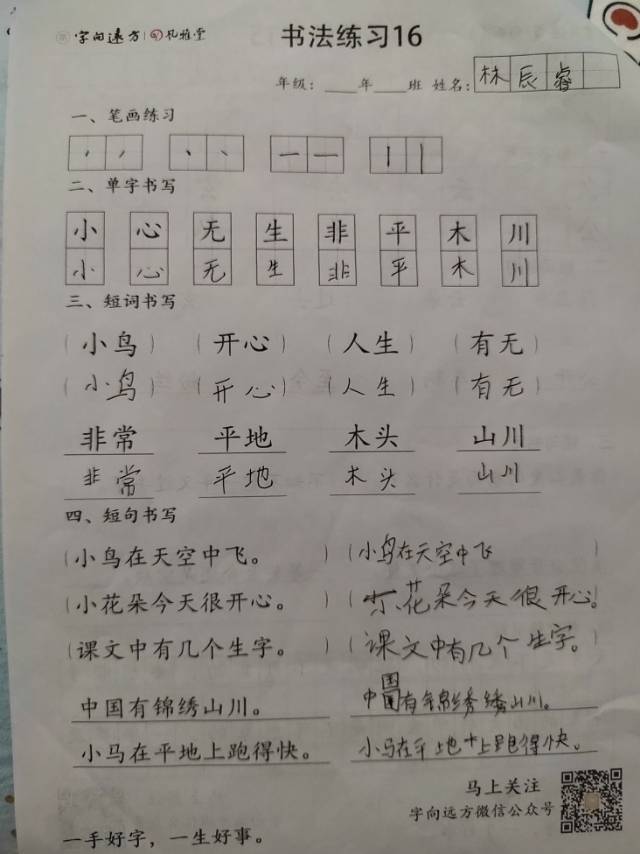 字向远方 | 礼雅堂
书法练习16
年级：____年____班 姓名：林辰睿
一、笔画练习
二、单字书写
小 心 无 生 非 平 木 川
小 心 无 生 非 平 木 川
三、短词书写
（小鸟）（开心）（人生）（有无）
（小鸟）（开心）（人生）（有无）
非常 平地 木头 山川
非常 平地 木头 山川
四、短句书写
（小鸟在天空中飞。）（小鸟在天空中飞）
（小花朵今天很开心。）（小花朵今天很开心。）
（课文中有几个生字。）（课文中有几个生字。）
中国有锦绣山川。 中国有锦绣山川。
小马在平地上跑得快。 小马在平地上跑得快。
马上关注
字向远方微信公众号
一手好字，一生好事。